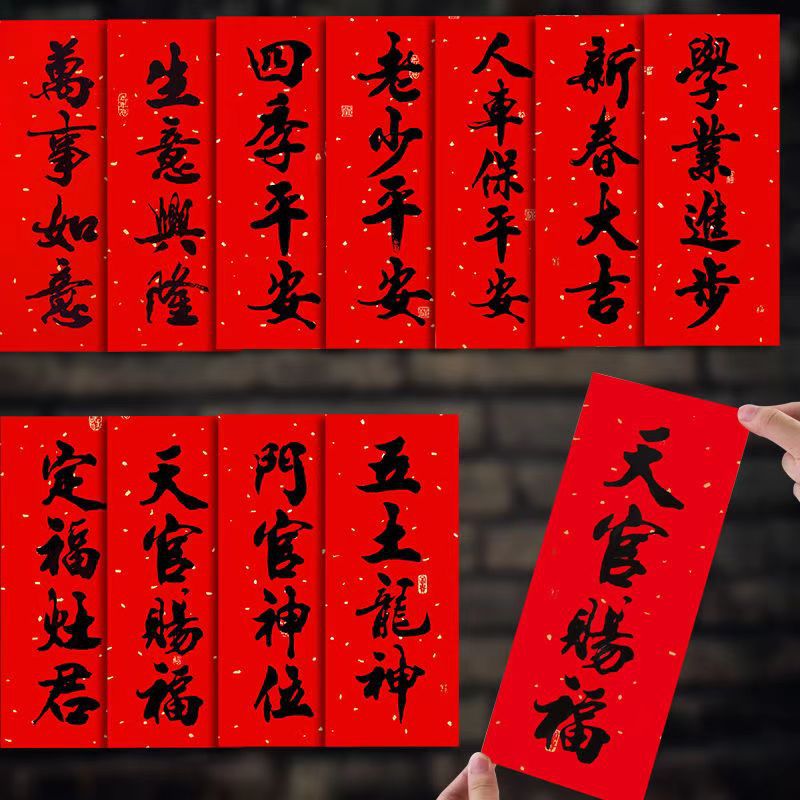 萬事如意
生意興隆
四季平安
老少平安
人車保平安
新春大吉
學業進步
定福灶君
天官賜福
門官神位
五土龍神
天官賜福